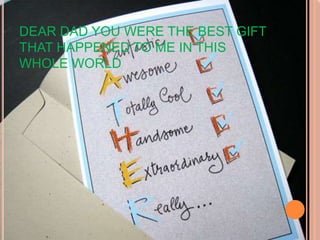 DEAR DAD YOU WERE THE BEST GIFT
THAT HAPPENED TO ME IN THIS
WHOLE WORLD
Fantastic
Awesome
Totally Cool
Handsome
Extraordinary
Really...